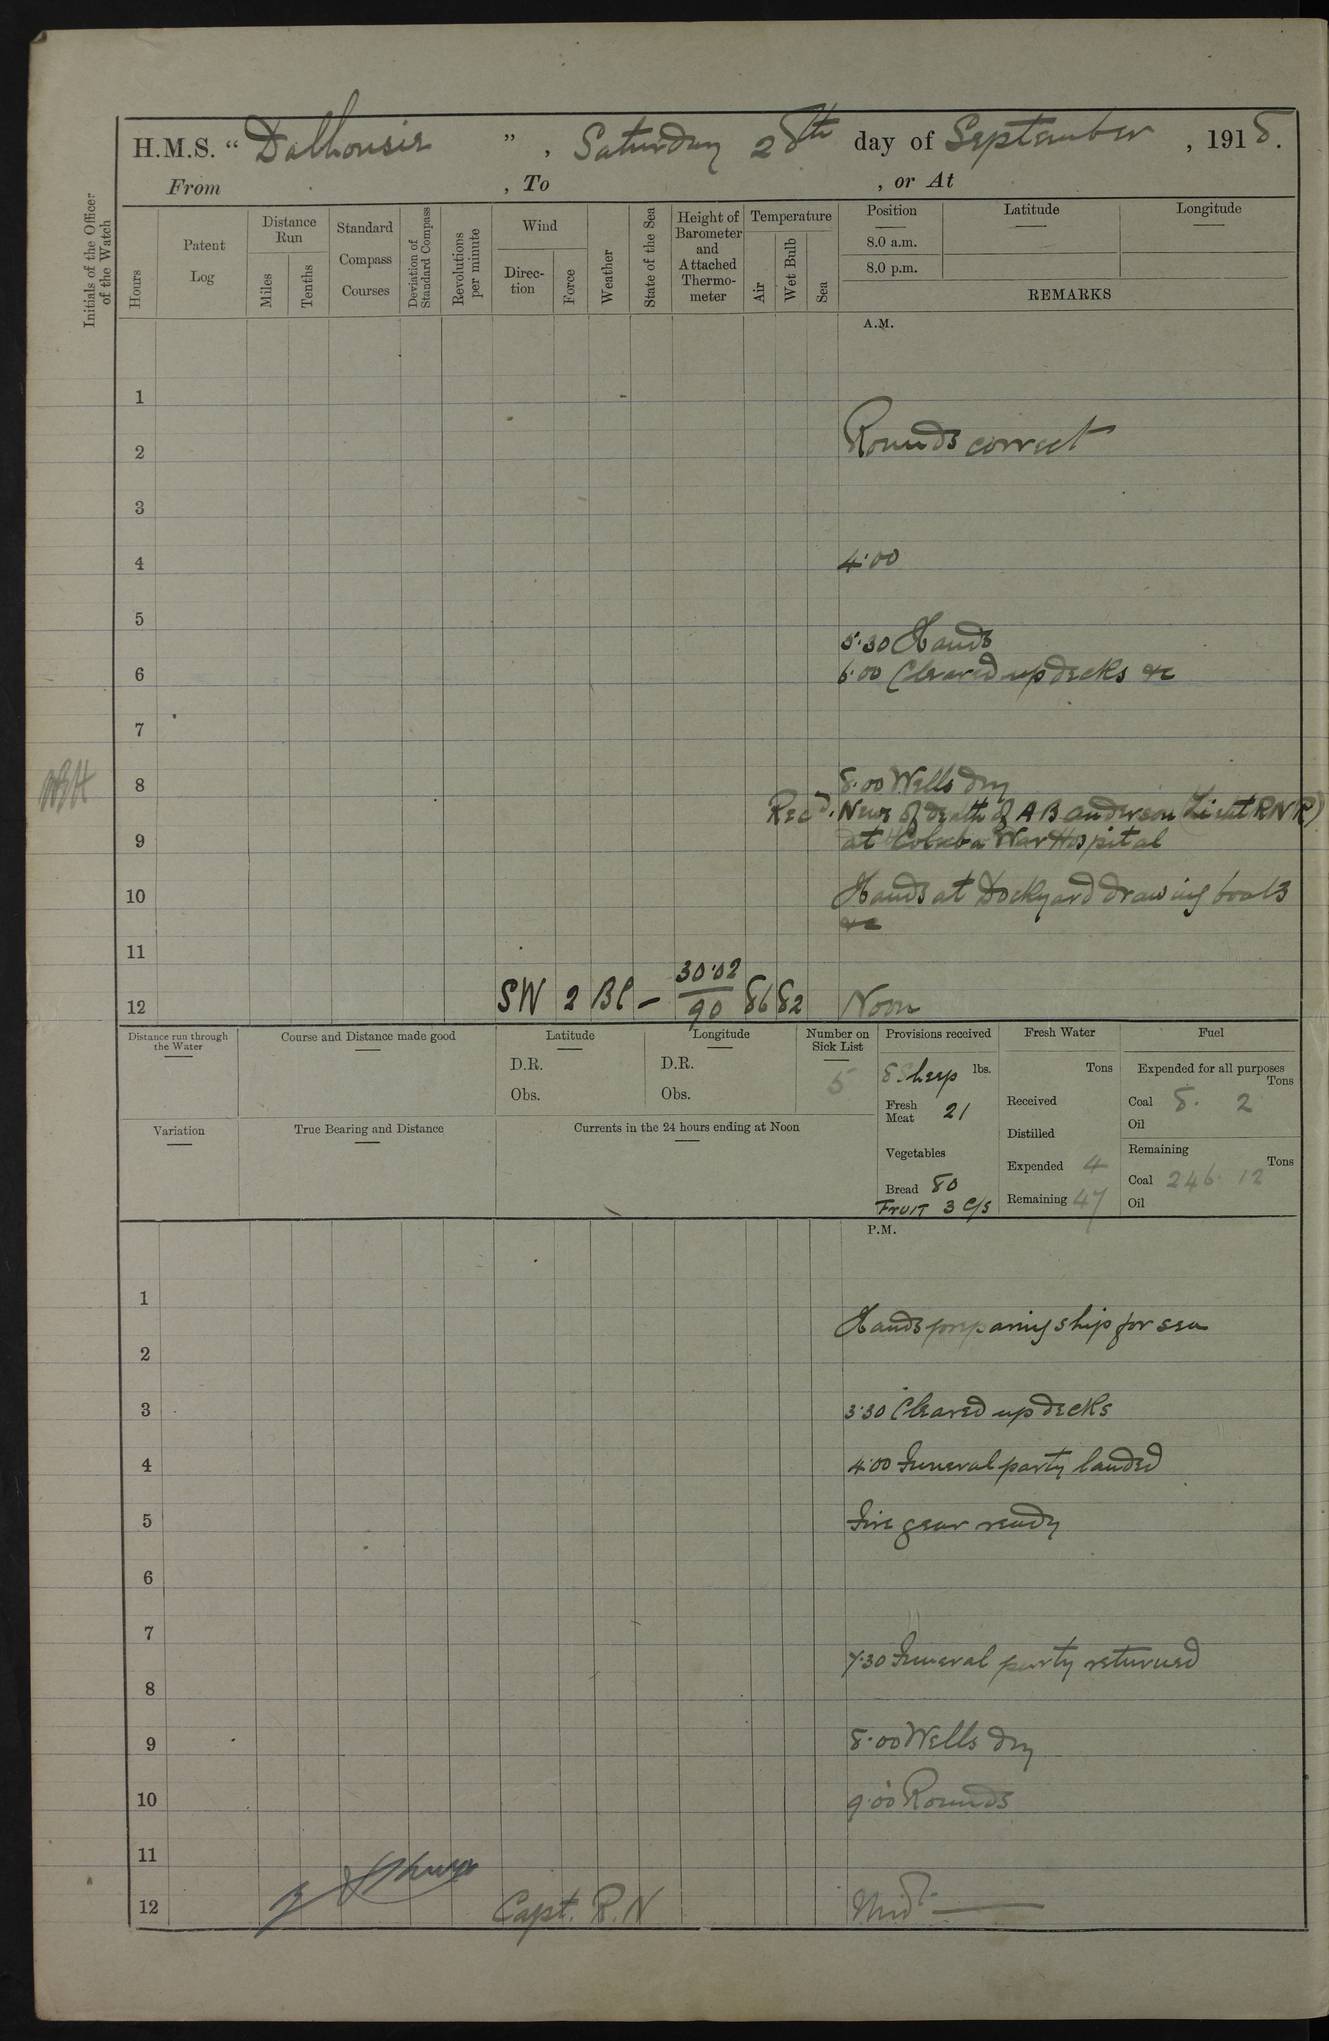 H.M.S. “ Dalhousie ” , Saturday 28th day of September , 1918.
From , To , or At
Initials of the Officer of the Watch
Hours
Patent Log
Distance Run
Miles
Tenths
Standard Compass Courses
Deviation of Standard Compass
Revolutions per minute
Wind
Direc-tion
Force
Weather
State of the Sea
Height of Barometer and Attached Thermo-meter
Temperature
Air
Wet Bulb
Sea
Position Latitude Longitude
8.0 a.m.
8.0 p.m.
REMARKS
A.M.
1
2 Rounds correct
3
4 4.00
5
5.30 Hands
6 6.00 Cleared up decks &c
7
8 8.00 Wells dry
Recd. News of death of A B Anderson (Lieut RNR)
9 at Colaba War Hospital
10 Hands at Dockyard drawing boats
&c
11
12 SW 2 BC – 30.02 / 90 86 82 Noon
Distance run through the Water
Course and Distance made good
Latitude
D.R.
Obs.
Longitude
D.R.
Obs.
Number on Sick List
5
Provisions received
8 Sheep lbs.
Fresh Meat 21
Vegetables
Bread 80
FRUIT 3 C/s
Fresh Water
Tons
Received
Distilled
Expended 4
Remaining 47
Fuel
Expended for all purposes
Tons
Coal 8. 2
Oil
Remaining
Tons
Coal 246. 12
Oil
Variation
True Bearing and Distance
Currents in the 24 hours ending at Noon
P.M.
1
Hands preparing ship for sea
2
3 3.30 Cleared up decks
4 4.00 Funeral party landed
5 Fire gear ready
6
7
7.30 Funeral party returned
8
9 8.00 Wells dry
10 9.00 Rounds
11
12 Capt. R.N Midt.